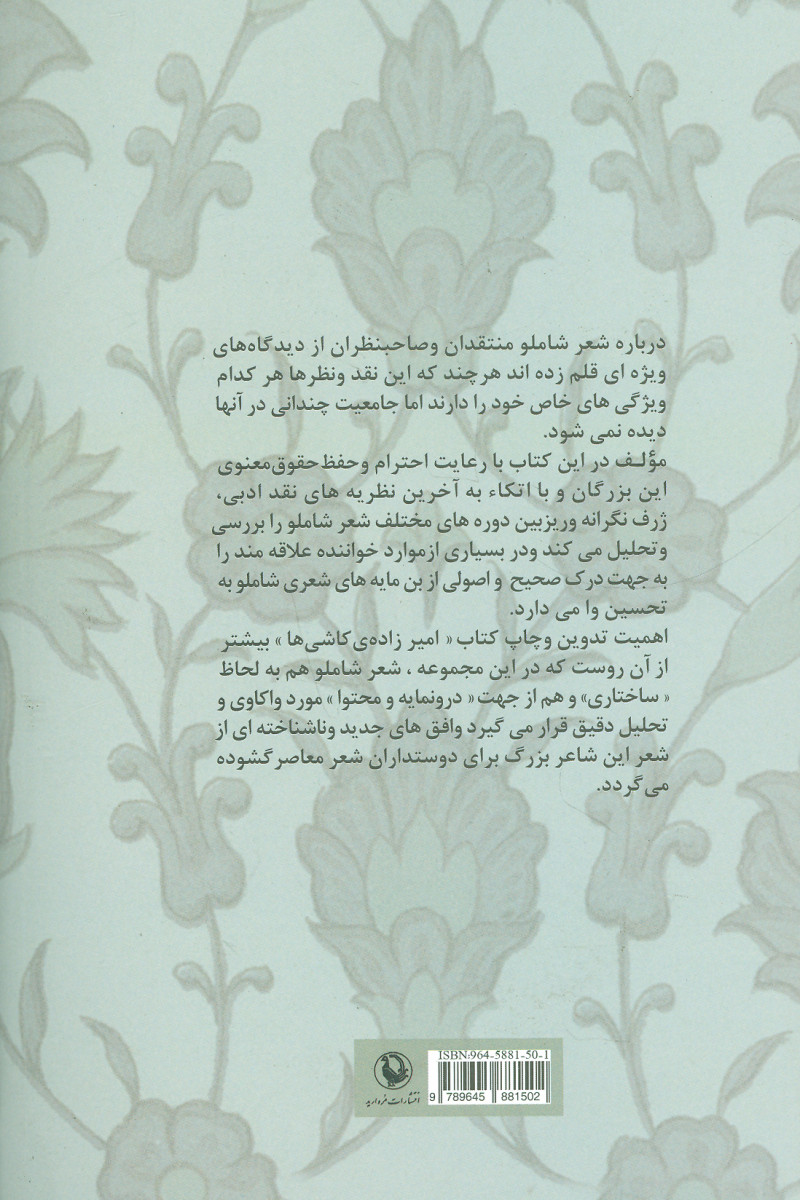 درباره شعر شاملو منتقدان وصاحبنظران از دیدگاه‌های
ویژه ای قلم زده اند هرچند که این نقد ونظرها هر کدام
ویژگی های خاص خود را دارند اما جامعیت چندانی در آنها
دیده نمی شود.
مؤلف در این کتاب با رعایت احترام وحفظ حقوق معنوی
این بزرگان و با اتکاء به آخرین نظریه های نقد ادبی،
ژرف نگرانه وریزبین دوره های مختلف شعر شاملو را بررسی
وتحلیل می کند ودر بسیاری ازموارد خواننده علاقه مند را
به جهت درک صحیح و اصولی از بن مایه های شعری شاملو به
تحسین وا می دارد.
اهمیت تدوین وچاپ کتاب « امیر زاده‌ی کاشی‌ها » بیشتر
از آن روست که در این مجموعه ، شعر شاملو هم به لحاظ
« ساختاری» و هم از جهت « درونمایه و محتوا » مورد واکاوی و
تحلیل دقیق قرار می گیرد وافق های جدید وناشناخته ای از
شعر این شاعر بزرگ برای دوستداران شعر معاصر گشوده
می‌گردد.
ISBN:964-5881-50-1
9 789645 881502
انتشارات مروارید